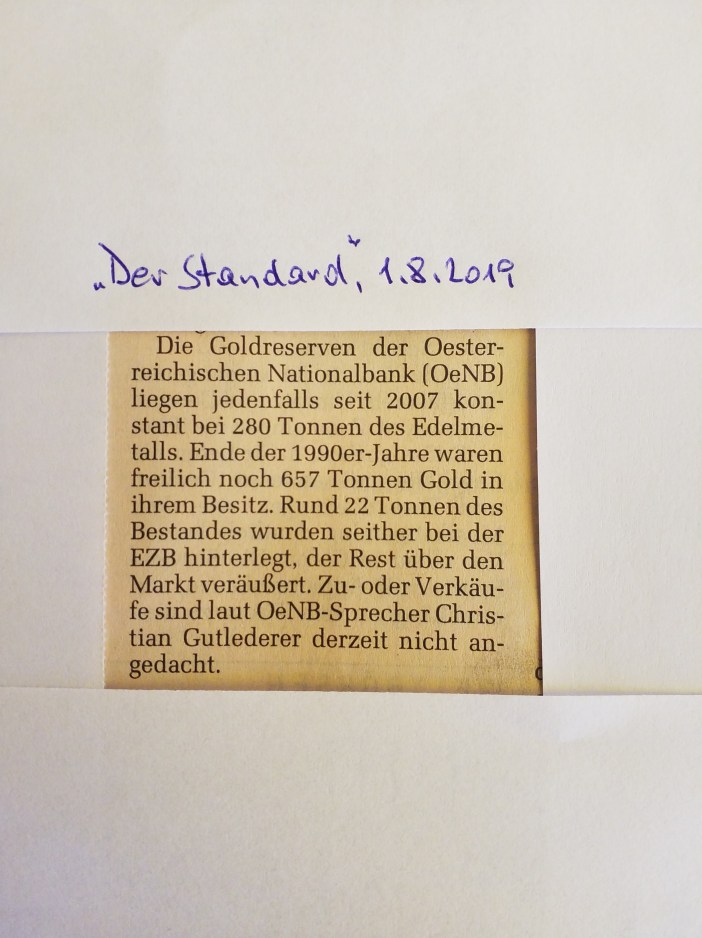 „Der Standard“, 1.8.2019
Die Goldreserven der Oester-
reichischen Nationalbank (OeNB)
liegen jedenfalls seit 2007 kon-
stant bei 280 Tonnen des Edelme-
talls. Ende der 1990er-Jahre waren
freilich noch 657 Tonnen Gold in
ihrem Besitz. Rund 22 Tonnen des
Bestandes wurden seither bei der
EZB hinterlegt, der Rest über den
Markt veräußert. Zu- oder Verkäu-
fe sind laut OeNB-Sprecher Chris-
tian Gutlederer derzeit nicht an-
gedacht.